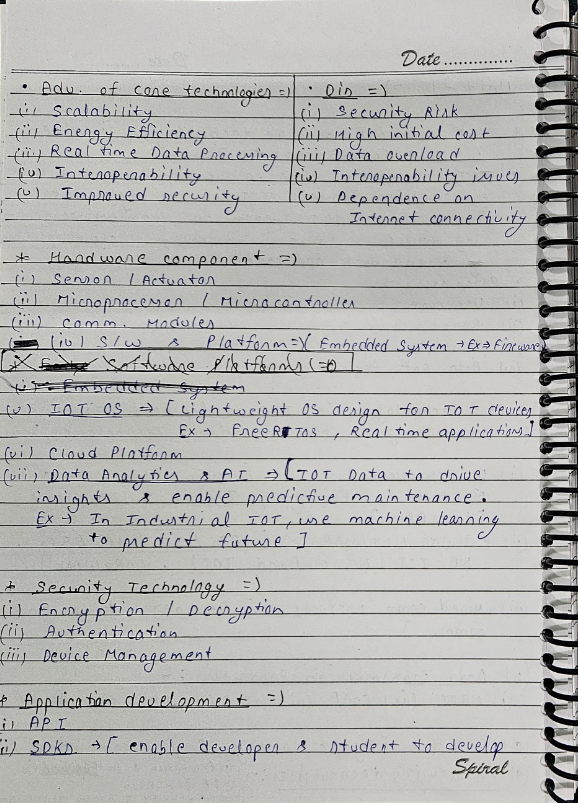 Date..............
• Adv. of core technologies =)
(i) Scalability
(ii) Energy Efficiency
(iii) Real time Data Processing
(iv) Interoperability
(v) Improved security
• Dis =)
(i) Security Risk
(ii) High initial cost
(iii) Data overload
(iv) Interoperability issues
(v) Dependence on
Internet connectivity
* Hardware component =)
(i) Sensor / Actuator
(ii) Microprocessor / Microcontroller
(iii) Comm. Modules
(iv) S/W & Platform =) ( Embedded System → Ex → Fireware
Software Platforms (=)
(i) Embedded System
(v) IOT OS => [ Lightweight OS design for IOT devices
Ex → FreeRTOS , Real time applications ]
(vi) Cloud Platform
(vii) Data Analytics & AI => [ IOT Data to drive
insights & enable predictive maintenance .
Ex → In Industrial IOT, use machine learning
to predict future ]
* Security Technology =)
(i) Encryption / Decryption
(ii) Authentication
(iii) Device Management
* Application development =)
i) API
ii) SDKs → [ enable developer & student to develop
Spiral